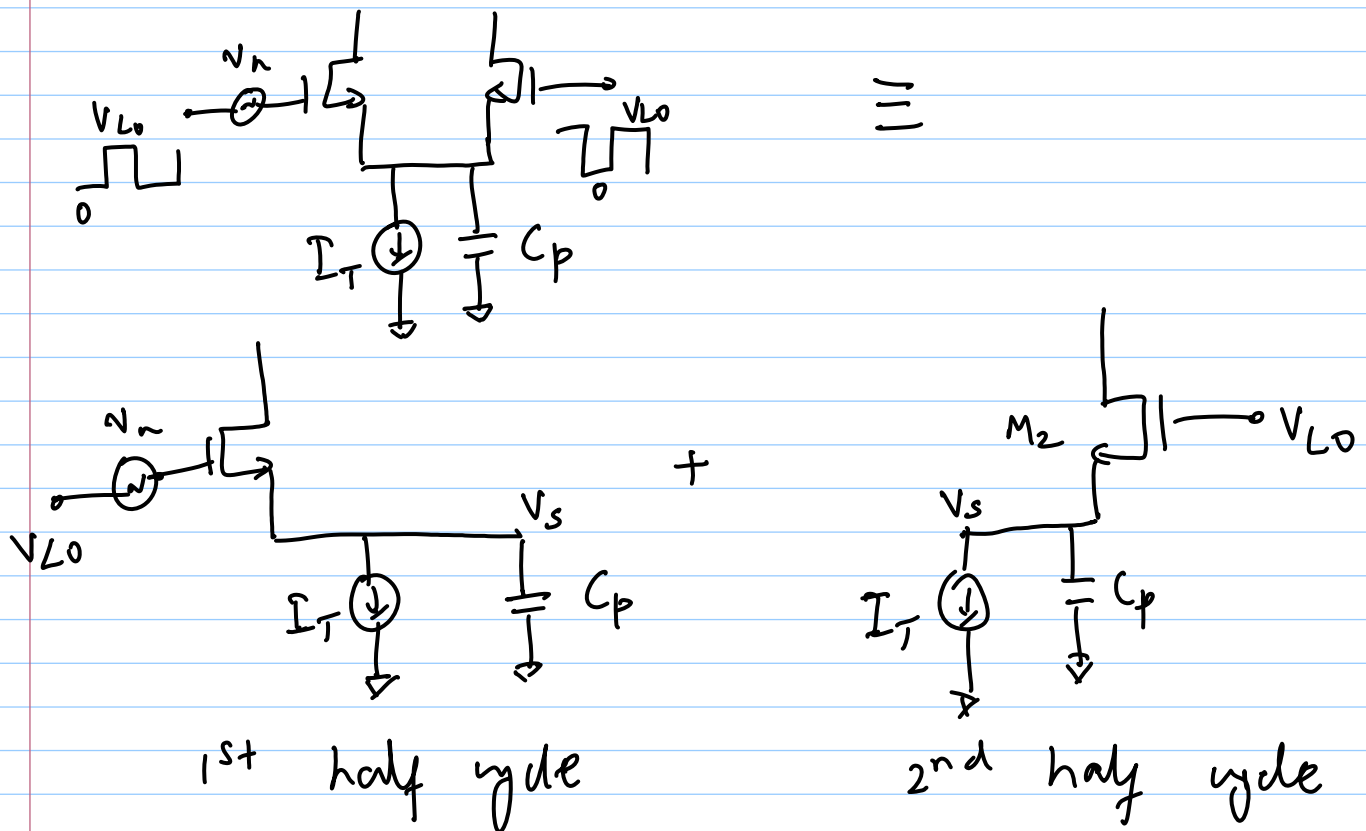 Vn
VLO
0
≡
VLO
0
IT
Cp
Vn
VLO
IT
Vs
Cp
+
M2
VLO
Vs
IT
Cp
1st half cycle
2nd half cycle